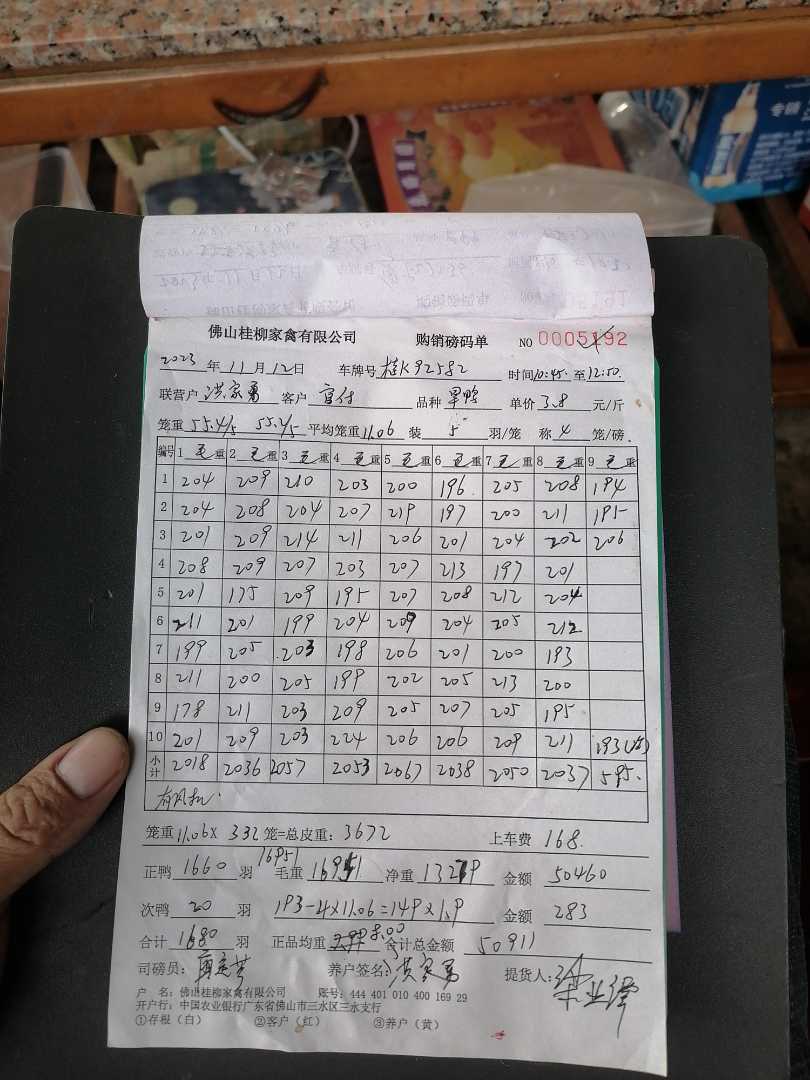 专销
佛山桂柳家禽有限公司 购销磅码单 NO 0005192
2023 年 11 月 12 日 车牌号 桂K92582 时间 10:45. 至 12:50.
联营户 洪家勇 客户 官付 品种 旱鸭 单价 3.8 元/斤
笼重 55.4/5 55.4/5 平均笼重 11.06 装 5 羽/笼 称 4 笼/磅.
编号 1 毛重 2 毛重 3 毛重 4 毛重 5 毛重 6 毛重 7 毛重 8 毛重 9 毛重
1 204 209 210 203 200 196 205 208 194
2 204 208 204 207 219 197 200 211 195
3 201 209 214 211 206 201 204 202 206
4 208 209 207 203 207 213 197 201
5 201 175 209 195 207 208 212 204
6 211 201 199 204 209 204 205 212
7 199 205 203 198 206 201 200 193
8 211 200 205 199 202 205 213 200
9 178 211 203 209 205 207 205 195
10 201 209 203 224 206 206 209 211 193(次)
小计 2018 2036 2057 2053 2067 2038 2050 2037 595.
有风机.
笼重 11.06 X 332 笼=总皮重: 3672 上车费 168.
正鸭 1660 羽 16951 毛重 16951 净重 13279 金额 50460
次鸭 20 羽 193-4×11.06=149×1.9 金额 283
合计 1680 羽 正品均重 8.00 合计总金额 50911
司磅员: 养户签名: 洪家勇 提货人:
户 名: 佛山桂柳家禽有限公司 账号: 444 401 010 400 169 29
开户行: 中国农业银行广东省佛山市三水区三水支行
①存根（白） ②客户（红） ③养户（黄）